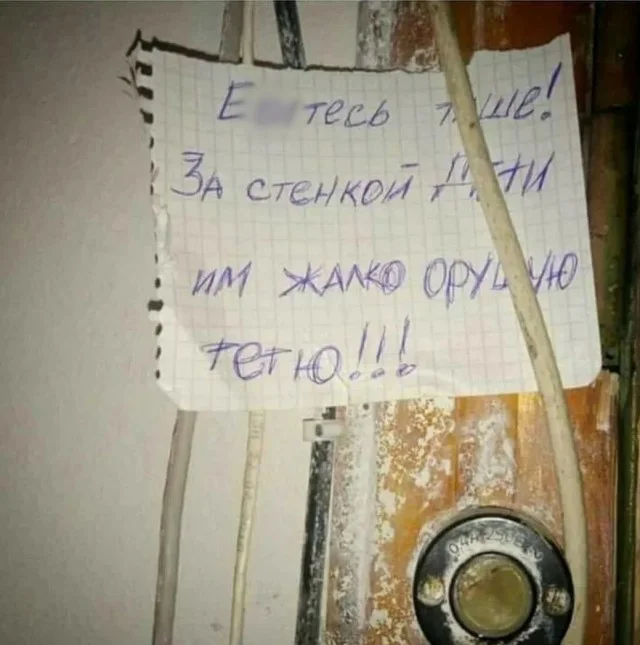 тише!
За стенкой дети
им жалко орущую
тетю!!!